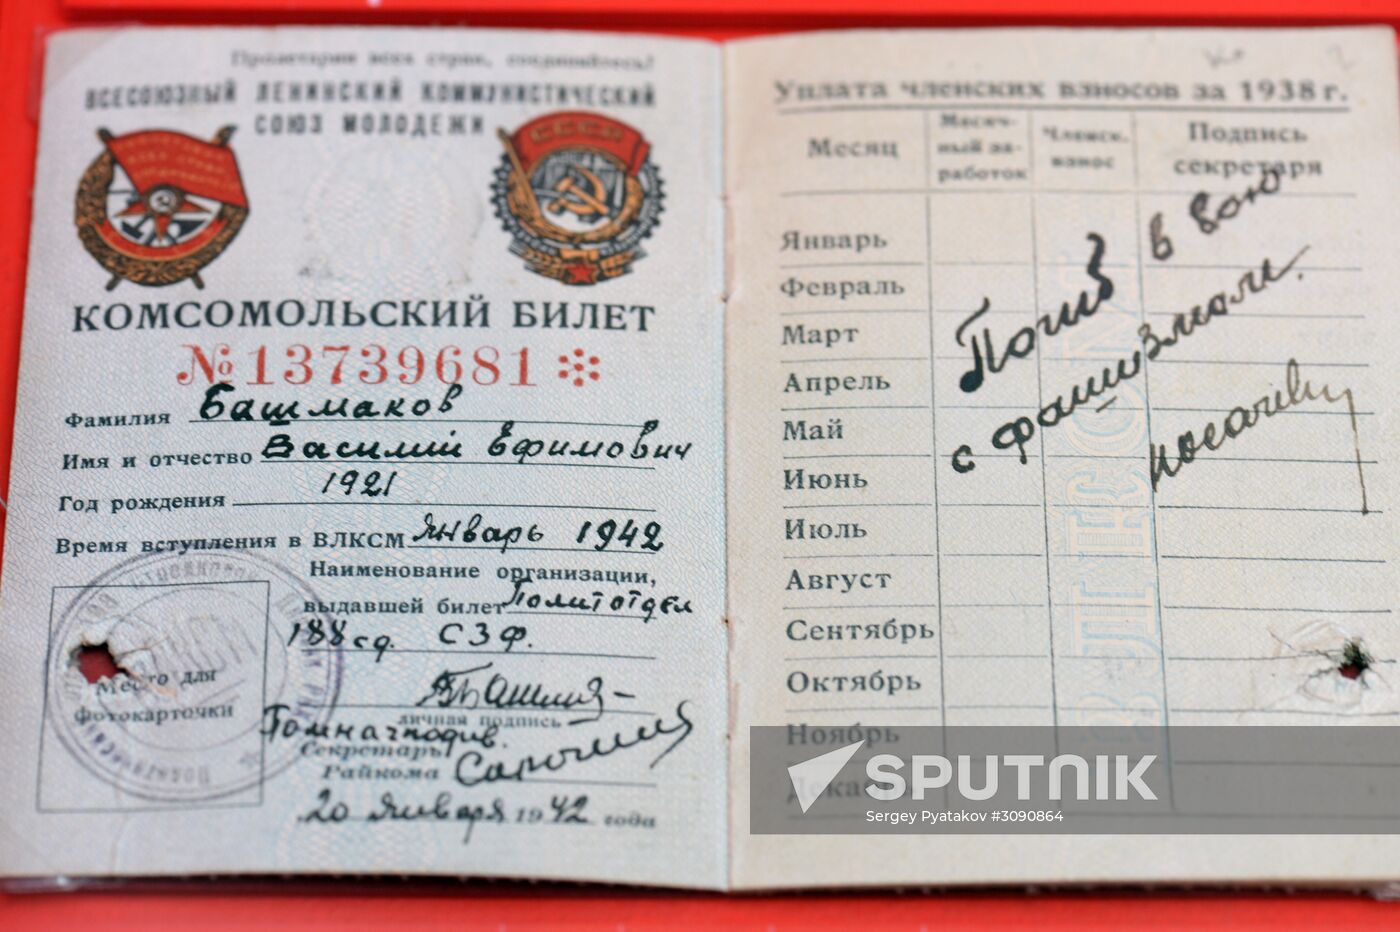 Пролетарии всех стран, соединяйтесь!
ВСЕСОЮЗНЫЙ ЛЕНИНСКИЙ КОММУНИСТИЧЕСКИЙ
СОЮЗ МОЛОДЕЖИ
СССР
КОМСОМОЛЬСКИЙ БИЛЕТ
№13739681
Фамилия Башмаков
Имя и отчество Василий Ефимович
Год рождения 1921
Время вступления в ВЛКСМ Январь 1942
Наименование организации,
выдавшей билет Политотдел
188 сд. СЗФ.
Место для
фотокарточки
личная подпись
Секретарь
Райкома
20 Января 1942 года
Уплата членских взносов за 1938 г.
Месяц
Месяч-
ный за-
работок
Членск.
взнос
Подпись
секретаря
Январь
Февраль
Март
Апрель
Май
Июнь
Июль
Август
Сентябрь
Октябрь
Ноябрь
Декабрь
Погиб в бою
с фашизмом.
ВЛКСМ
SPUTNIK
Sergey Pyatakov #3090864